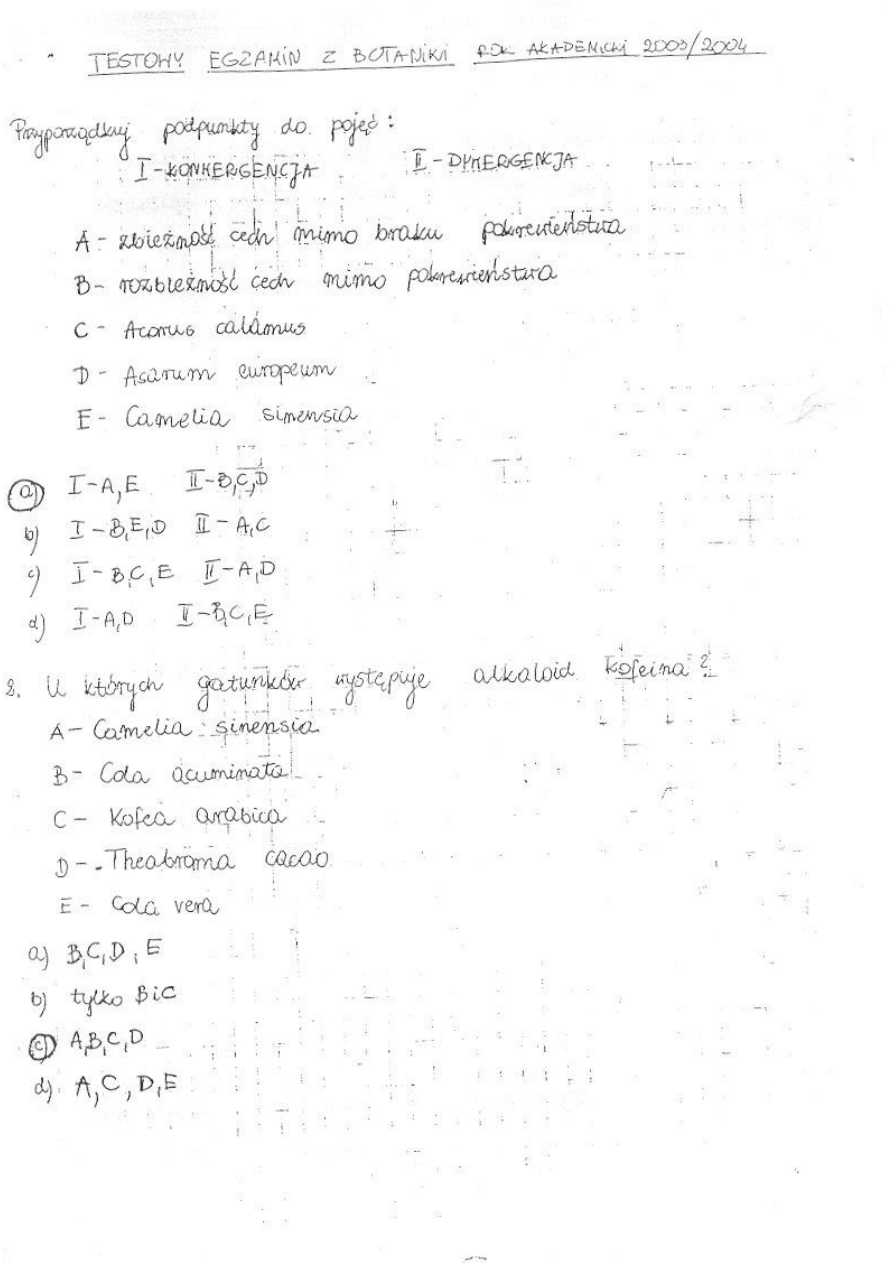 TESTOWY EGZAMIN Z BOTANIKI ROK AKADEMICKI 2003/2004
Przyporządkuj podpunkty do pojęć:
I-KONWERGENCJA II-DYWERGENCJA
A - zbieżność cech mimo braku pokrewieństwa
B- rozbieżność cech mimo pokrewieństwa
C - Acorus calamus
D - Asarum europeum
E- Camelia sinensia
a) I-A,E II-B,C,D
b) I-B,E,D II-A,C
c) I-B,C,E II-A,D
d) I-A,D II-B,C,E
2. U których gatunków występuje alkaloid kofeina?
A- Camelia sinensia
B- Cola acuminata
C- Kofea arabica
D-. Theabroma cacao
E- Cola vera
a) B,C,D,E
b) tylko B i C
c) A,B,C,D
d). A,C,D,E